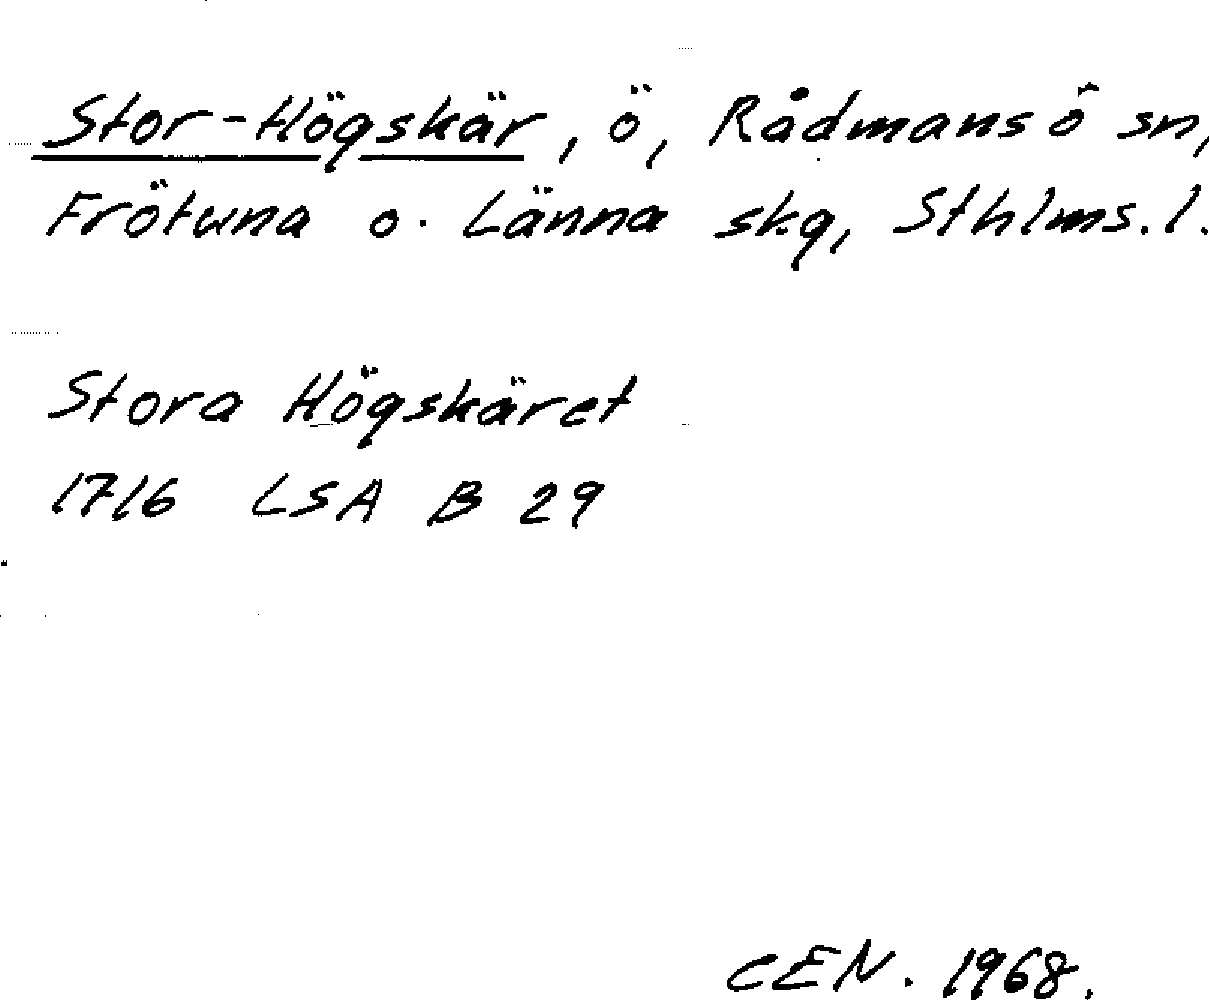 Stor-Högskär, ö, Rådmansö sn,
Frötuna o. Länna skg, Sthlms. l.
Stora Högskäret
1716 LSA B 29
CEN. 1968.